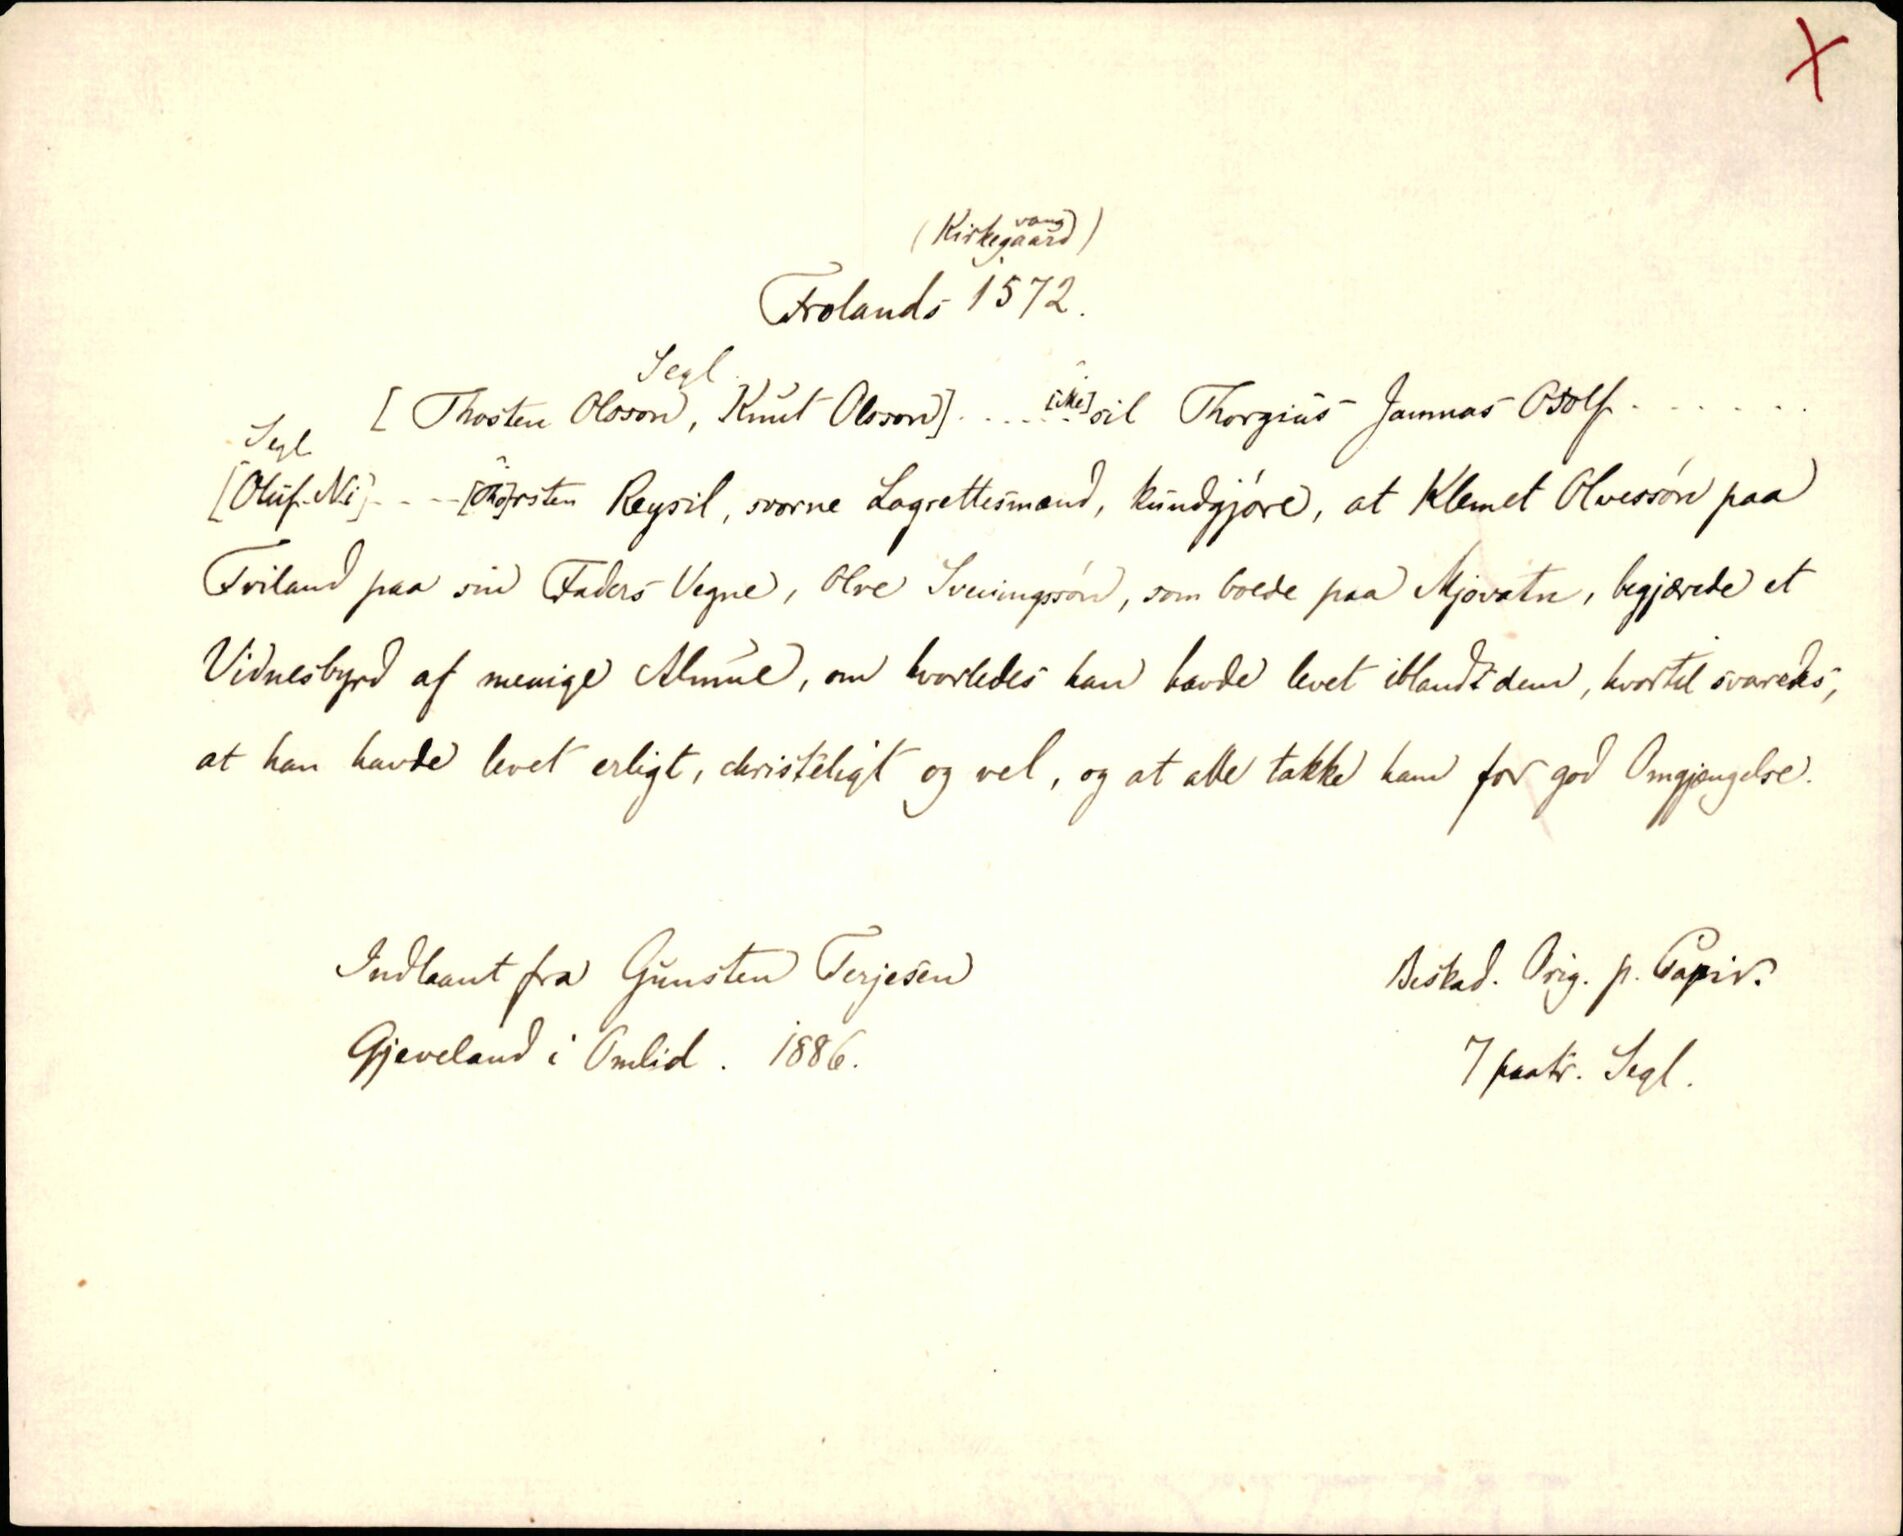 X
vang
(Kirkegaard)
Frolands 1572.
Segl.
[Thosten Olsson, Knut Olsson] . . . . . [Me]sil Thorgius Jammas Odolf . . . . . .
Segl
[Oluf Ni] . . . . [Tho]rsten Reysil, svorne Lagrettesmænd, kundgjøre, at Klemet Olvessøn paa
Tviland paa sin Faders Vegne, Olve Sveinungssøn, som boede paa Mjovatn, begjærede et
Vidnesbyrd af menige Almue, om hvorledes han havde levet iblandt dem, hvortil svaredes,
at han havde levet erligt, christeligt og vel, og at alle takke ham for god Omgjængelse.
Indlaant fra Gunsten Terjesen
Gjeveland i Omlid. 1886.
Beskad. Orig. p. Papir.
7 paatr. Segl.